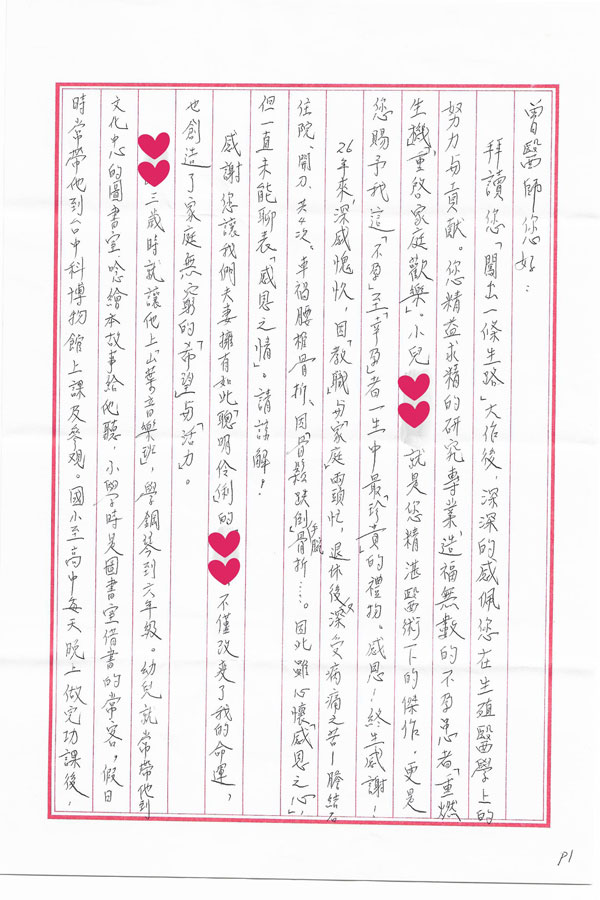 曾醫師您好：
拜讀您「闖出一條生路」大作後，深深的感佩您在生殖醫學上的
努力與貢獻。您精益求精的研究專業，造福無數的不孕患者「重燃
生機」，「重啓家庭歡樂」。小兒就是您精湛醫術下的傑作，更是
您賜予我這「不孕」至「辛孕」者一生中最「珍貴」的禮物。感恩！終生感謝！
26年來，深感愧疚，因「教職」與「家庭」兩頭忙，退休後又深受病痛之苦—膽結石
住院、開刀，共4次。車禍腰椎骨折、因「骨鬆」跌倒手腕骨折……。因此雖心懷「感恩之心」，
但一直未能聊表「感恩之情」。請諒解！
感謝您讓我們夫妻擁有如此「聰明伶俐」的不僅改變了我的命運，
也創造了家庭無窮的「希望」與「活力」。
三歲時就讓他上「山葉音樂班」，學鋼琴到六年級。幼兒就常帶他到
文化中心的圖書室唸繪本故事給他聽，小學時是圖書室借書的常客，假日
時常帶他到台中科博物館上課及參觀。國小至高中每天晚上做完功課後，
P1